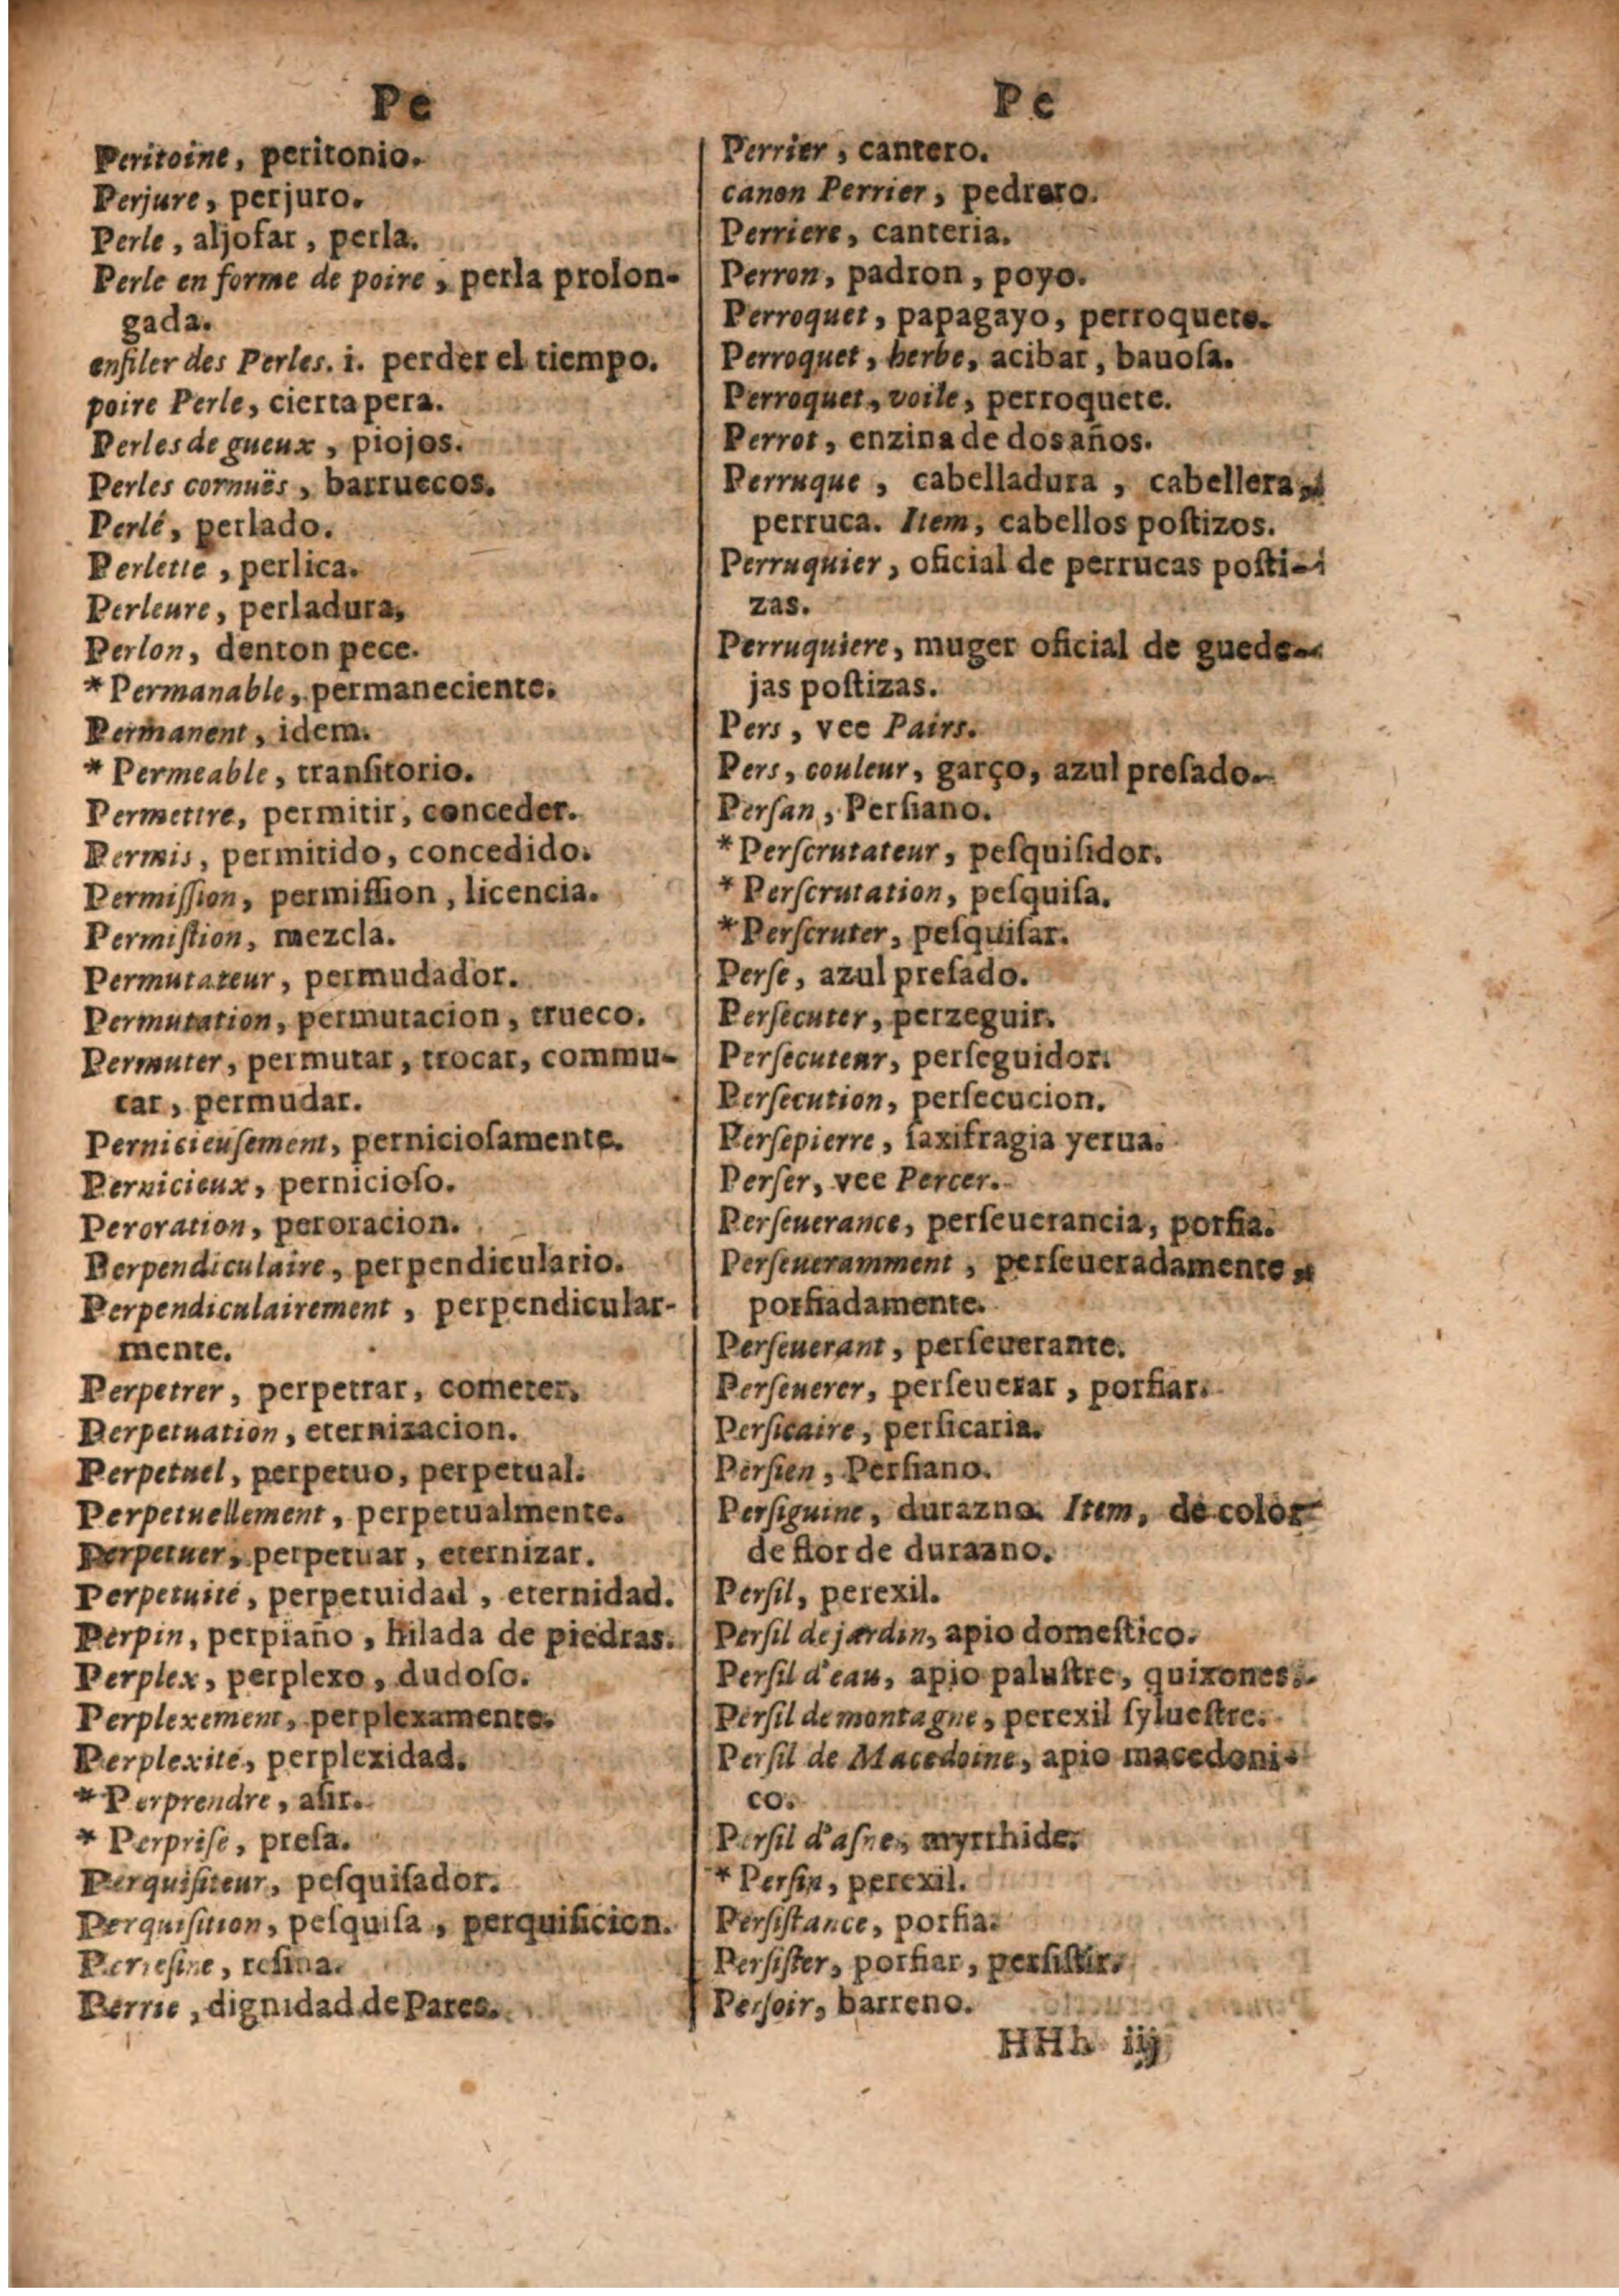 Pe
Peritoine, peritonio.
Perjure, perjuro.
Perle, aljofar, perla.
Perle en forme de poire, perla prolon-
gada.
enfiler des Perles. i. perder el tiempo.
poire Perle, cierta pera.
Perles de gueux, piojos.
Perles cornuës, barruecos.
Perlé, perlado.
Perlette, perlica.
Perleure, perladura,
Perlon, denton pece.
*Permanable, permaneciente.
Permanent, idem.
* Permeable, tranſitorio.
Permettre, permitir, conceder.
Permis, permitido, concedido.
Permiſſion, permiſſion, licencia.
Permiſtion, mezcla.
Permutateur, permudador.
Permutation, permutacion, trueco.
Permuter, permutar, trocar, commu-
tar, permudar.
Pernicieuſement, pernicioſamente.
Pernicieux, pernicioſo.
Peroration, peroracion.
Perpendiculaire, perpendiculario.
Perpendiculairement, perpendicular-
mente.
Perpetrer, perpetrar, cometer,
Perpetuation, eternizacion.
Perpetuel, perpetuo, perpetual.
Perpetuellement, perpetualmente.
Perpetuer, perpetuar, eternizar.
Perpetuité, perpetuidad, eternidad.
Perpin, perpiaño, hilada de piedras.
Perplex, perplexo, dudoſo.
Perplexement, perplexamente.
Perplexité, perplexidad.
*Perprendre, aſir.
* Perpriſe, preſa.
Perquiſiteur, peſquiſador.
Perquiſition, peſquiſa, perquiſicion.
Perreſine, reſina.
Perrie, dignidad de Pares.
Pe
Perrier, cantero.
canon Perrier, pedrero.
Perriere, canteria.
Perron, padron, poyo.
Perroquet, papagayo, perroquete.
Perroquet, herbe, acibar, bauoſa.
Perroquet, voile, perroquete.
Perrot, enzina de dos años.
Perruque, cabelladura, cabellera,
perruca. Item, cabellos poſtizos.
Perruquier, oficial de perrucas poſti-
zas.
Perruquiere, muger oficial de guede-
jas poſtizas.
Pers, vee Pairs.
Pers, couleur, garço, azul preſado.
Perſan, Perſiano.
*Perſcrutateur, peſquiſidor.
*Perſcrutation, peſquiſa.
*Perſcruter, peſquiſar.
Perſe, azul preſado.
Perſecuter, perzeguir.
Perſecuteur, perſeguidor.
Perſecution, perſecucion.
Perſepierre, ſaxifragia yerua.
Perſer, vee Percer.
Perſeuerance, perſeuerancia, porfia.
Perſeueramment, perſeueradamente,
porfiadamente.
Perſeuerant, perſeuerante.
Perſeuerer, perſeuerar, porfiar.
Perſicaire, perſicaria.
Perſien, Perſiano.
Perſiguine, durazno. Item, de color
de flor de durazno.
Perſil, perexil.
Perſil de jardin, apio domeſtico.
Perſil d'eau, apio paluſtre, quixones.
Perſil de montagne, perexil ſylueſtre.
Perſil de Macedoine, apio macedoni-
co.
Perſil d'aſne, myrrhide.
* Perſin, perexil.
Perſiſtance, porfia.
Perſiſter, porfiar, perſiſtir.
Perſoir, barreno.
HHh iij